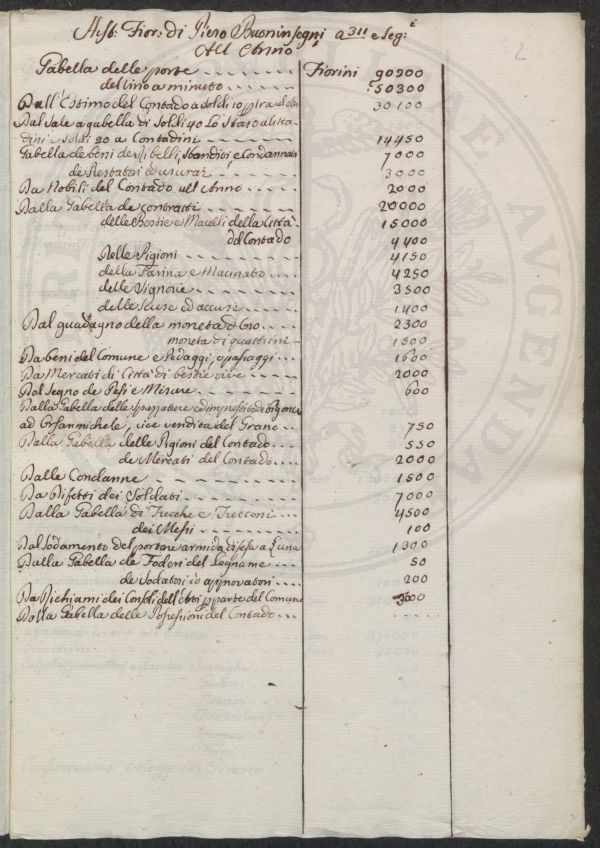 Hist: Fior: di Piero Buoninsegni a 311 e seg:ti
All' Anno
2
Gabella delle porte - - - - - - - Fiorini 90200
del vino a minuto - - - - - - 50300
Dall' Estimo del Contado a soldi 10 30100
Dal sale a gabella di soldi 40 Lo staio a Citta-
dini e soldi 20 a Contadini - - - - - 14450
Gabella de beni de ribelli, sbanditi e Condannati 7000
de Prestatori ed usurai - - - - 3000
Da Nobili del Contado all' Anno - - - - 2000
Dalla Gabella de contratti - - - - 20000
delle Bestie e Macelli della Città 15000
del Contado 4400
Delle Pigioni - - - - 4150
della Farina e Macinato - - - 4250
delle Signorie - - - - 3500
delle scuse ed accuse - - - - 1400
Dal guadagno della moneta d'Oro - - - 2300
moneta di quattrini - 1500
Da beni del Comune e Pedaggi, o passaggi - - - 1600
Da Mercati di Città di bestie vive - - - - 2000
Dal Segno de Pesi e Misure - - - - 600
Dalla Gabella delle
ad Orsanmichele, cice vendita del Grano - - 750
Dalla Gabella delle Pigioni del Contado - - - - 550
de Mercati del Contado - - - - 2000
Dalle Condanne - - - - - - - 1500
Da Difetti dei Soldati - - - - - - 7000
Dalla Gabella di Trecche e Trecconi - - - 4500
dei Messi - - - - - - - 100
Dal Sodamento del portare armi da difesa a Luna 1300
Dalla Gabella de Foderi del Legname - - - 50
de Sodatori ed approvatori - - - - 200
Da Richiami dei Consoli dell' Arti p parte del Comune 300
Dalla Gabella delle Possessioni del Contado - - - . . . .